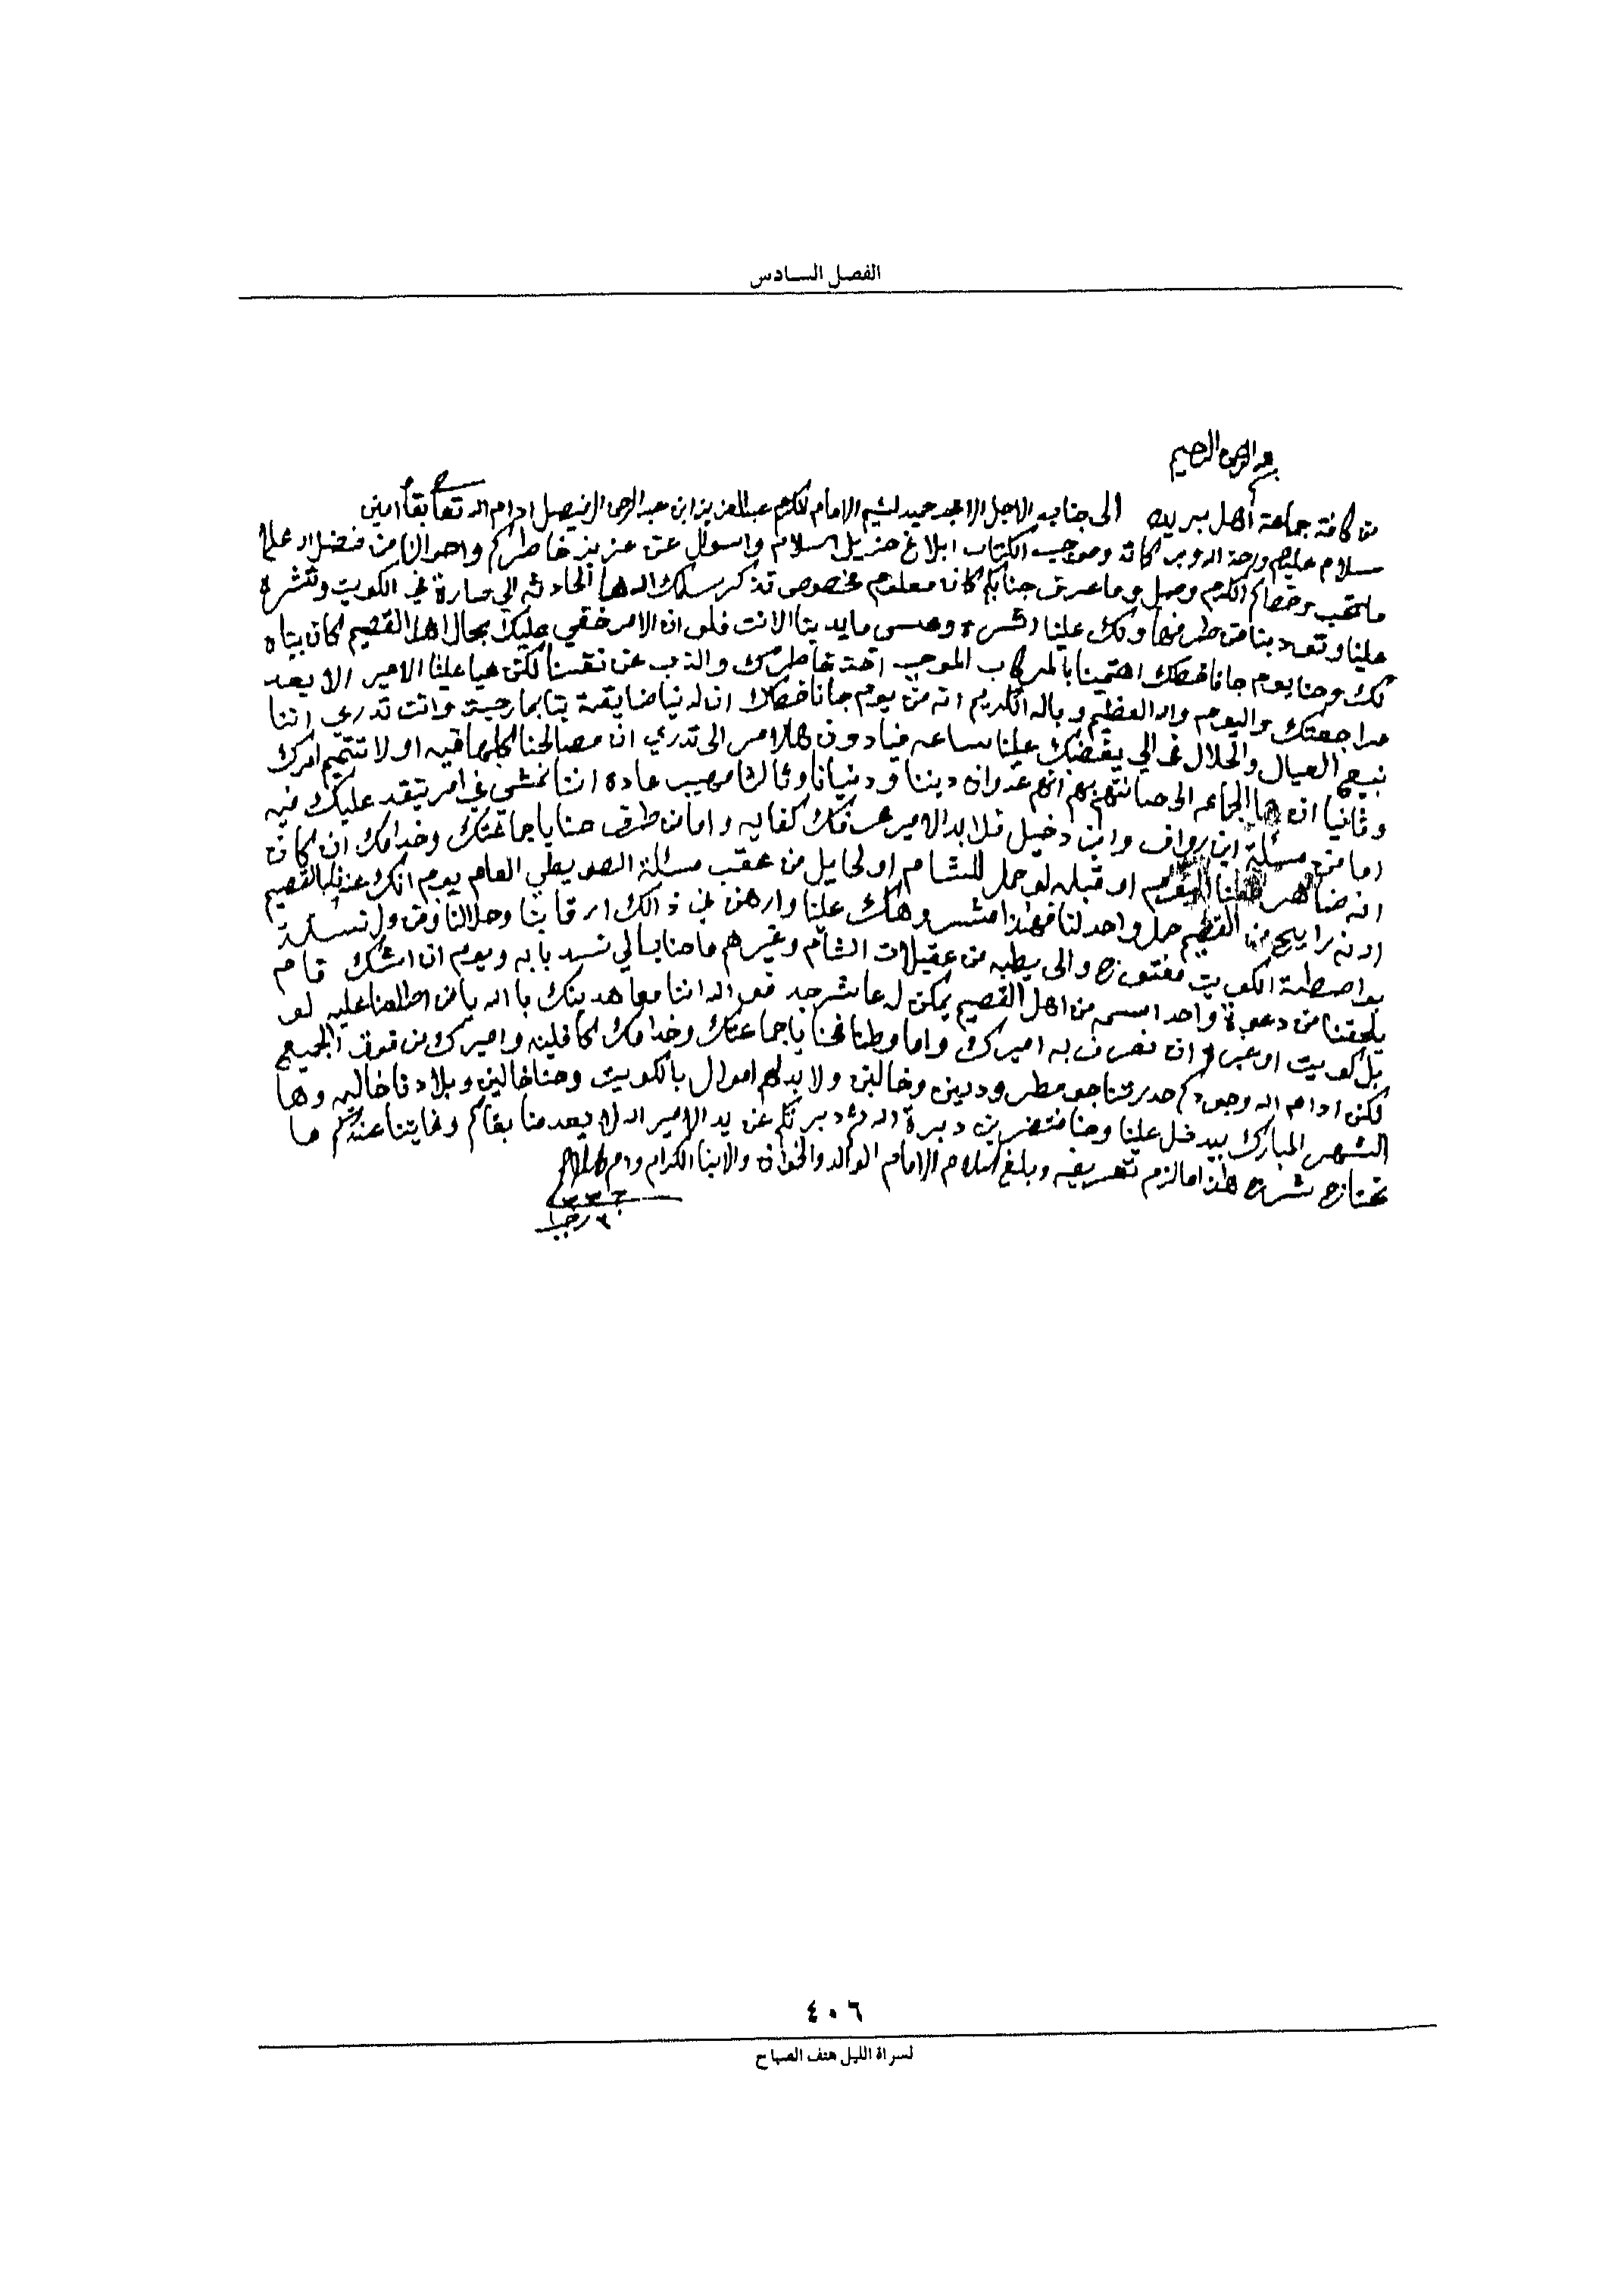 الفصل السادس
بسم الله الرحمن الرحيم
من كافة جماعة أهل بريده الى جناب الاجل الامجد حميد الشيم الامام المكرم عبدالعزيز ابن عبد الرحمن الفيصل ادام الله تعا بقا امين
سلام عليكم ورحمة الله وبركاته وموجب الكتاب ابلاغ جزيل السلام والسوال عن عزيز خاطركم واحوالنا من فضل الله على
ماتحب وخطكم المكرم وصل وما عرف جنابكم كان معلوم مخصوص تذكر سلمك الله ها الحادثه الي صارة في الكويت وتشره
علينا وتعد بنا من طرفها ولك علينا الشره وعسى مايدينا الا انت فلو ان الامر خفي عليك بحال اهل القصيم كان بيناه
لك وحنا يوم جانا خطك اهتمينا بالمركاب الموجب اخذ خاطرك والذب عن نفسنا لكن عيا علينا الامير الا بعد
مراجعتك واليوم والله العظيم وبالله الكريم انه من يوم جانا خطك ان الدنيا ضايقة بنا بما رحبت وانت تدري اننا
نبيع العيال والحلال عن الي يغضبك علينا ساعه فيا دون هالامر الى تدري ان مصالحنا كلها فيه اولا تتميم امرك
وثانيا ان ها الجماعه الى حنا نتهم بهم انهم عدوان ديننا ودنيانا وثالثا مهيب عاده اننا نمشي في امر ينقد عليك فيه
اما من مسئلة ابن رواف وابن دخيل فلا بد الامير عرفك كفايه واما من طرف حنايا جماعتك وخدامك ان كان
انه ظاهر او قبله لو حمل للشام او لحايل من عقب مسئلة الصويطي العام يوم انك عندنا بالقصيم
اونه رايح من القصيم حمل واحد لنا فهذا وهاك علينا وارهن في ذالك ارقابنا وحلالنا ومن
بواصطة الكويت مفتوح والى يطبه من عقيلات الشام وغيرهم ماحنا بالي نسد بابه ويوم ان قام
يلحقنا من دعوة واحد اسمه من اهل القصيم يمكن له عاشر جد فوالله اننا معاهدينك بالله يا من اطلعنا عليه لو
بلكويت او غير ان نعرف به اميرك واما وطنا فحنا ياجماعتك وخدامك كافلينه واميرك من فوق الجميع
لكن ادام الله وجودكم حدرتنا جو مطر ودين وخالين ولا بد لهم اموال بالكويت وحنا خالين وبلادنا خاليه وها
الشهر المبارك بيدخل علينا وحنا منتضرين دبرة الله ثم دبرتكم عن يد الامير الله لا يعدمنا بقاكم وغايتنا عندكم ما
تحتاج شرح هذا مالزم تعريفه وبلغ السلام الامام الوالد والاخوان والابنا الكرام ودم والسلام
٤٠٦
لسراة الليل هتف الصباح